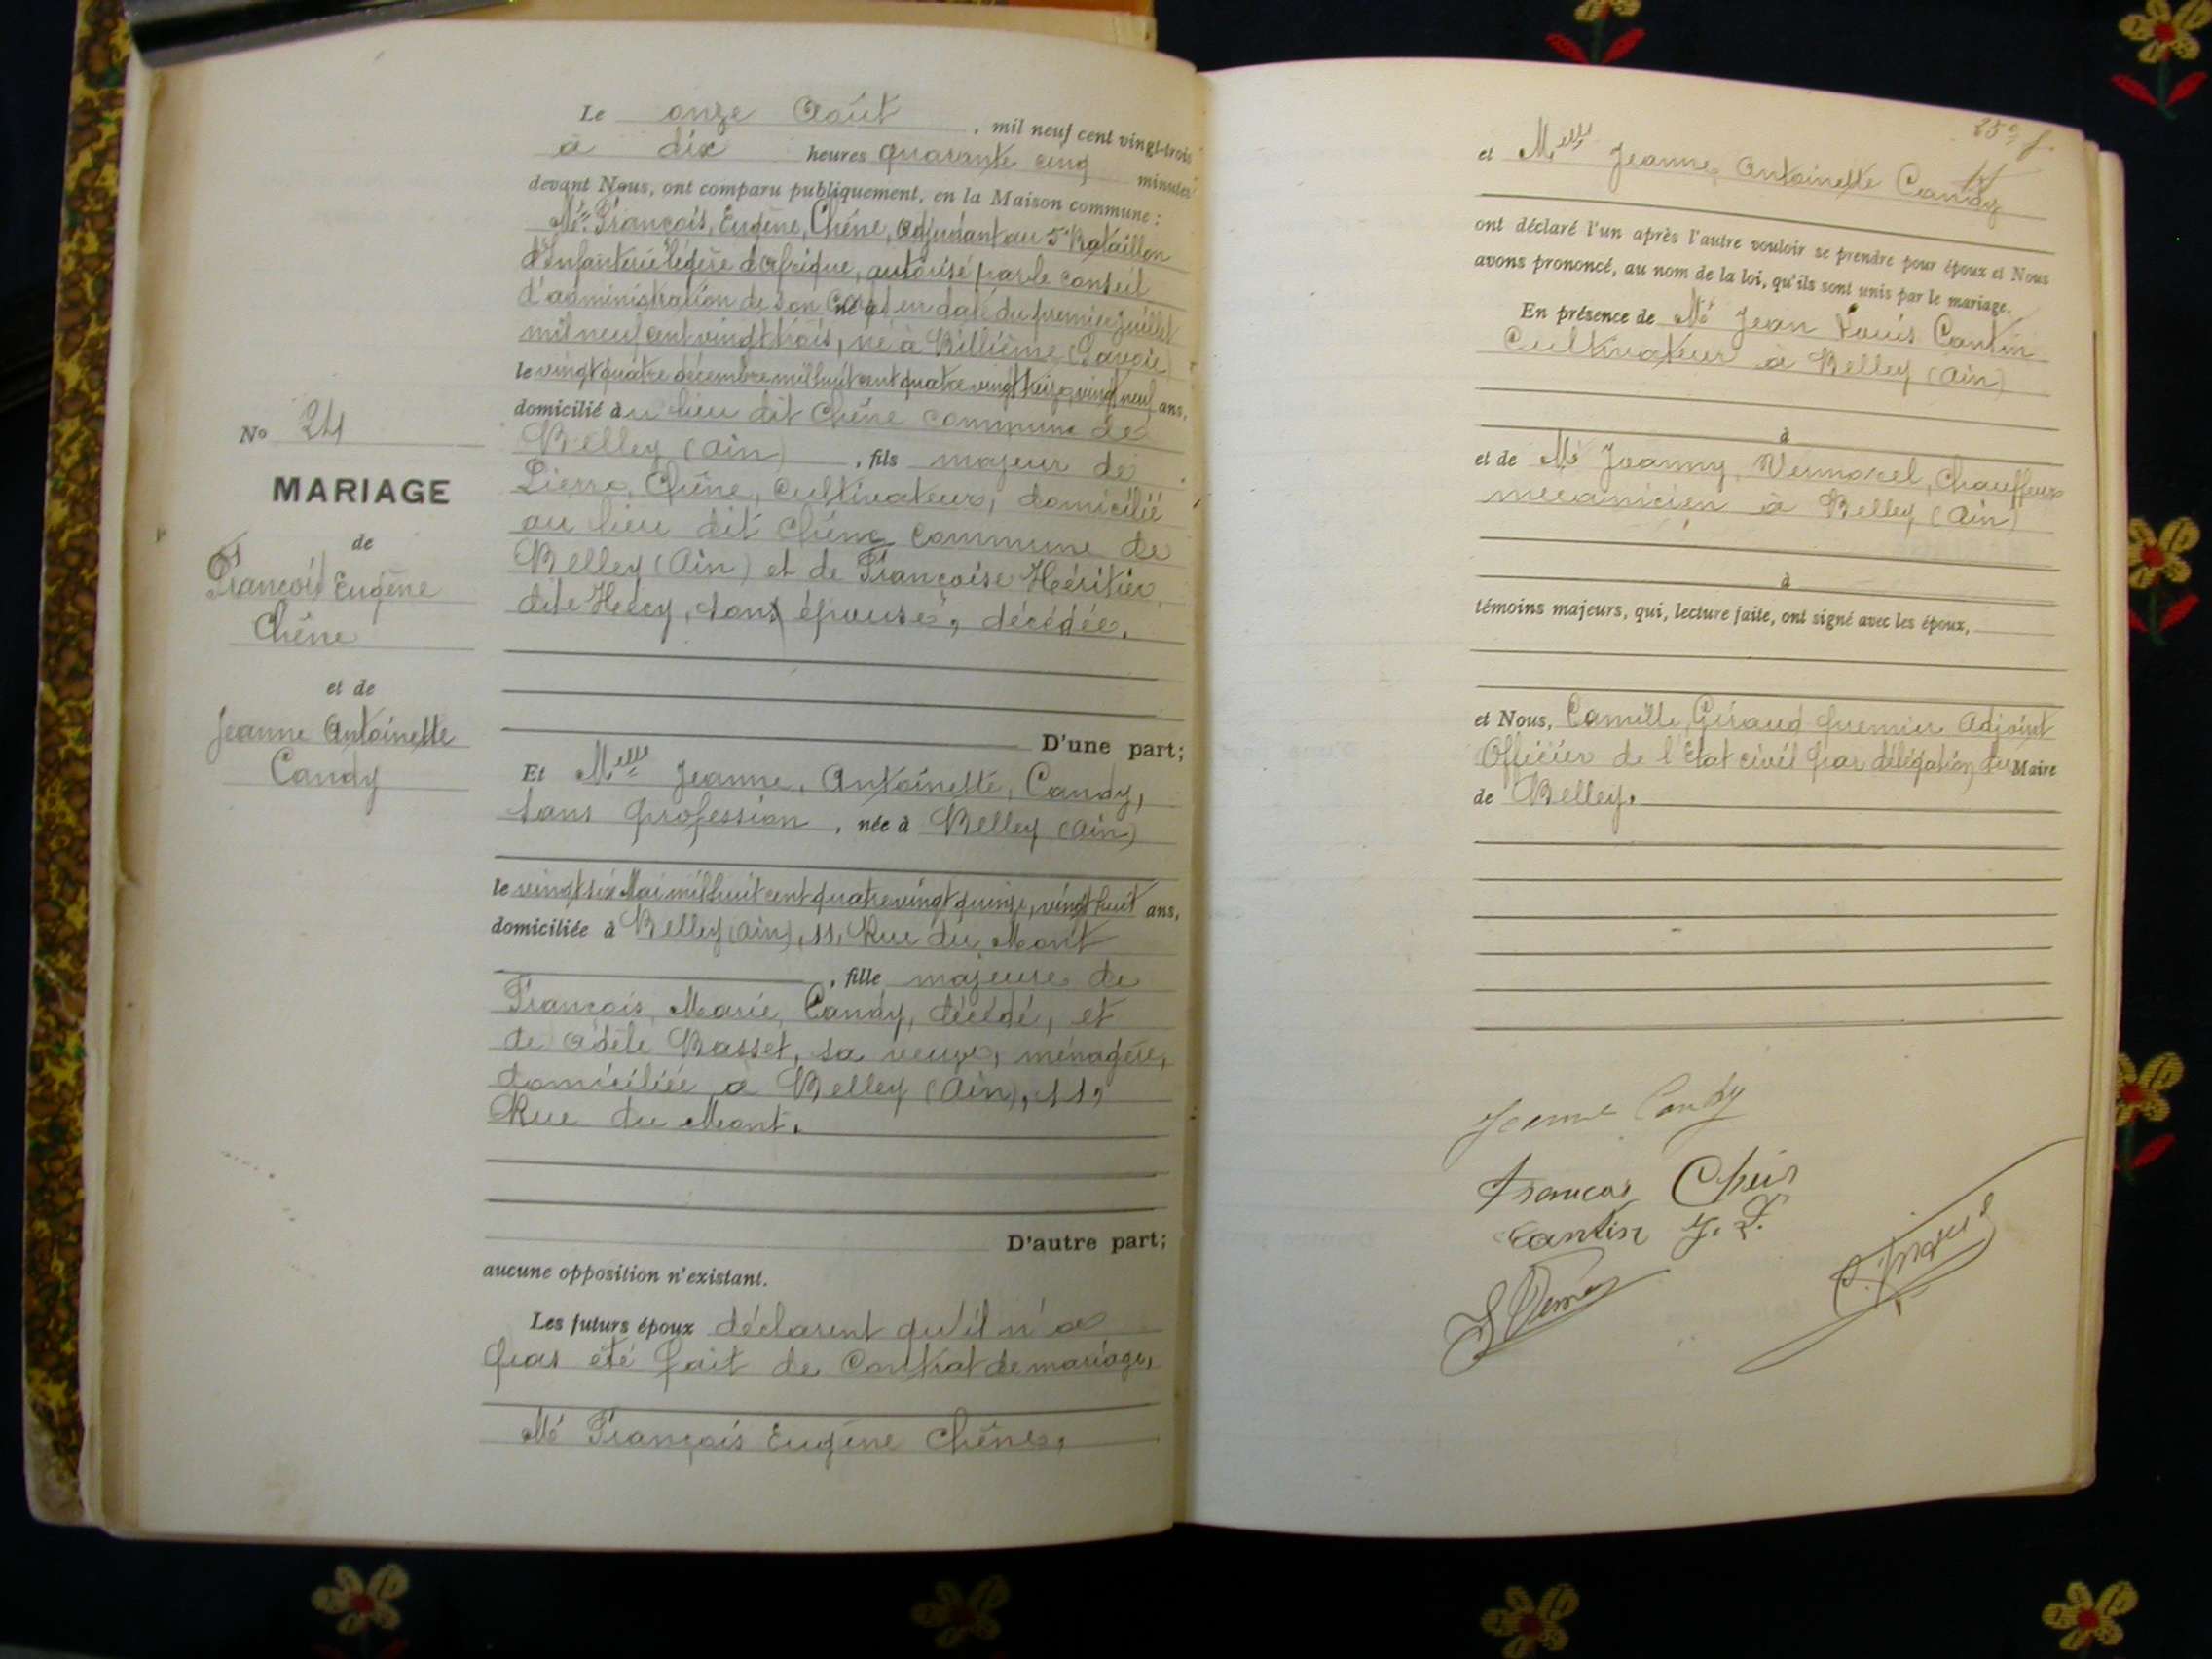 Le onze Août, mil neuf cent vingt-trois
à dix heures quarante cinq minutes
devant Nous, ont comparu publiquement, en la Maison commune :
Mr François, Eugène, Chêne, Adjudant au 5e Bataillon
d'Infanterie légère d'Afrique, autorisé par le conseil
d'administration de son en date du premier juillet
mil neuf cent vingt trois, né à Billième (Savoie)
le vingt quatre décembre mil huit cent quatre vingt treize, vingt neuf ans,
domicilié au lieu dit Chêne commune de
Belley (Ain), fils majeur de
Pierre, Chêne, cultivateur, domicilié
au lieu dit Chêne commune de
Belley (Ain) et de Françoise Héritier
dite Hécy, sont épouse, décédée.
D'une part;
No 24
MARIAGE
de
François Eugène
Chêne
et de
Jeanne Antoinette
Candy
Et Melle Jeanne, Antoinette, Candy,
sans profession, née à Belley (Ain)
le vingt six Mai mil huit cent quatre vingt quinze, vingt huit ans,
domiciliée à Belley (Ain), 11, Rue du Mont
, fille majeure de
François, Marie, Candy, décédé, et
de Adèle Basset, sa veuve, ménagère,
domiciliée à Belley (Ain), 11,
Rue du Mont.
D'autre part;
aucune opposition n'existant.
Les futurs époux déclarent qu'il n'a
pas été fait de Contrat de mariage,
Mr François Eugène Chêne,
25e f.
et Melle Jeanne, Antoinette Candy
ont déclaré l'un après l'autre vouloir se prendre pour époux et Nous
avons prononcé, au nom de la loi, qu'ils sont unis par le mariage.
En présence de Mr Jean Louis Cantin
Cultivateur à Belley (Ain)
à
et de Mr Joanny, Vermorel, Chauffeur
mecanicien à Belley (Ain)
à
témoins majeurs, qui, lecture faite, ont signé avec les époux,
et Nous, Camille, Giraud premier Adjoint
Officier de l'Etat civil par délégation du Maire
de Belley.
Jeanne Candy
Cantin J. L.